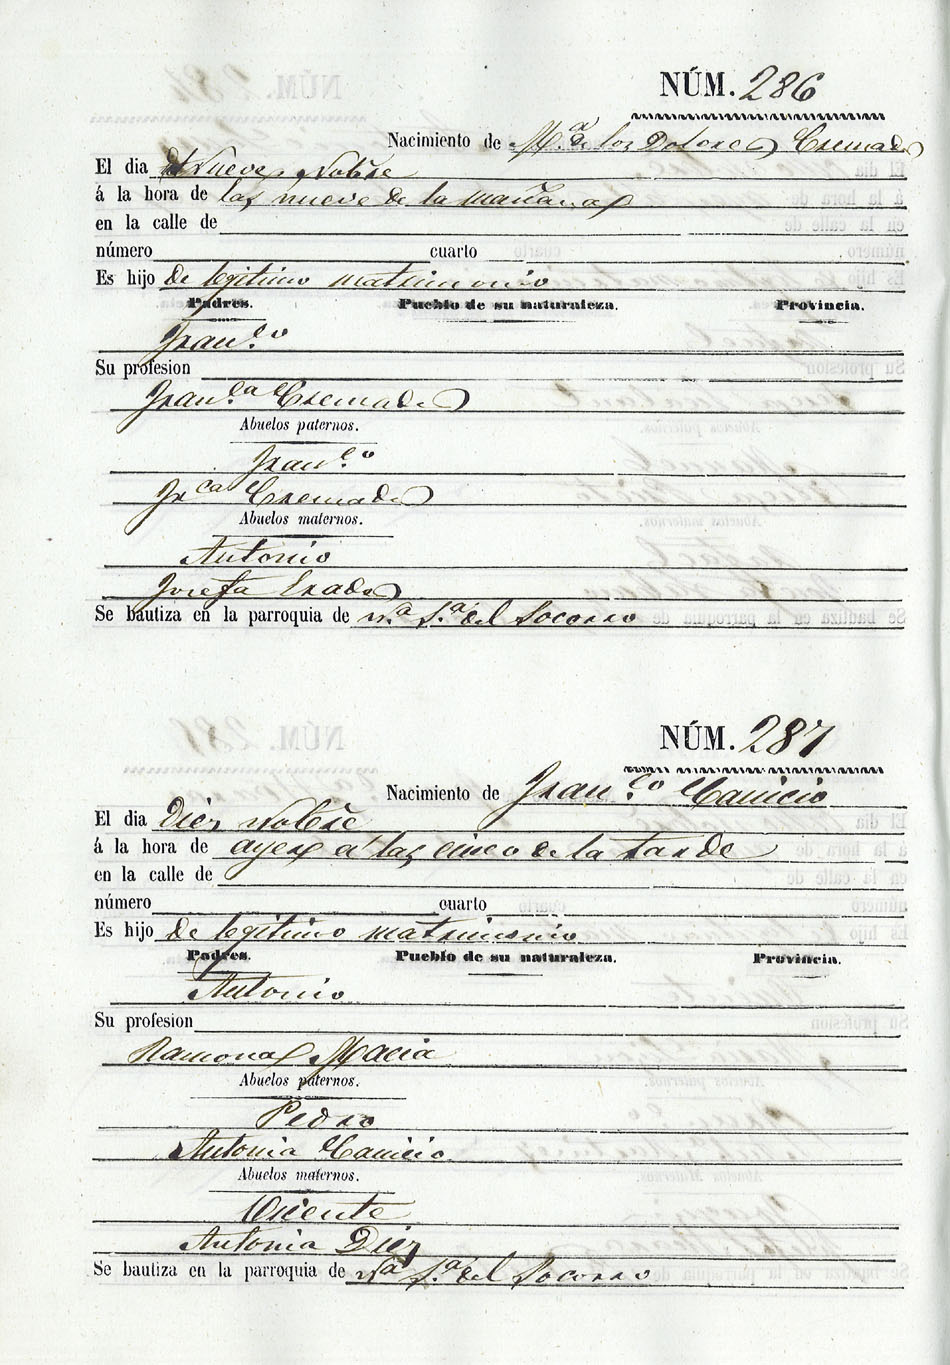 NÚM. 286
Nacimiento de Mª de los Dolores Cremades
El dia Nueve Nobre
á la hora de las nueve de la mañana
en la calle de
número cuarto
Es hijo de legitimo matrimonio
Padres. Pueblo de su naturaleza. Provincia.
Franco
Su profesion
Franca Cremades
Abuelos paternos.
Franco
Frca Cremades
Abuelos maternos.
Antonio
Josefa
Se bautiza en la parroquia de Na Sa del Socorro
NÚM. 287
Nacimiento de Franco Canicio
El dia Diez Nobre
á la hora de ayer a las cinco de la tarde
en la calle de
número cuarto
Es hijo de legitimo matrimonio
Padres. Pueblo de su naturaleza. Provincia.
Antonio
Su profesion
Ramona Macia
Abuelos paternos.
Pedro
Antonia Canicio
Abuelos maternos.
Vicente
Antonia Diez
Se bautiza en la parroquia de Na Sa del Socorro